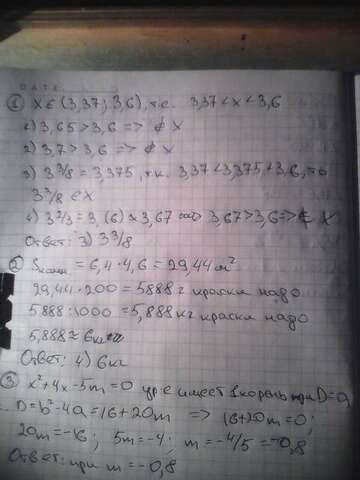 DATE
① X∈(3,37; 3,6), т.е. 3,37<x<3,6
1) 3,65>3,6 => ∉ X
2) 3,7>3,6 => ∉ X
3) 3 3/8 = 3,375, т.к. 3,37<3,375<3,6, то
3 3/8 ∈ X
4) 3 2/3 = 3,(6) ≈ 3,67 3,67>3,6 => ∉ X
Ответ: 3) 3 3/8
② Sкомн = 6,4·4,6 = 29,44 м²
29,44·200 = 5888 г краски надо
5888:1000 = 5,888 кг краски надо
5,888 ≈ 6 кг
Ответ: 4) 6 кг
③ x²+4x-5m=0 ур-е имеет 1 корень при D=0,
D=b²-4a=16+20m => 16+20m=0;
20m=-16; 5m=-4; m=-4/5=-0,8
Ответ: при m=-0,8